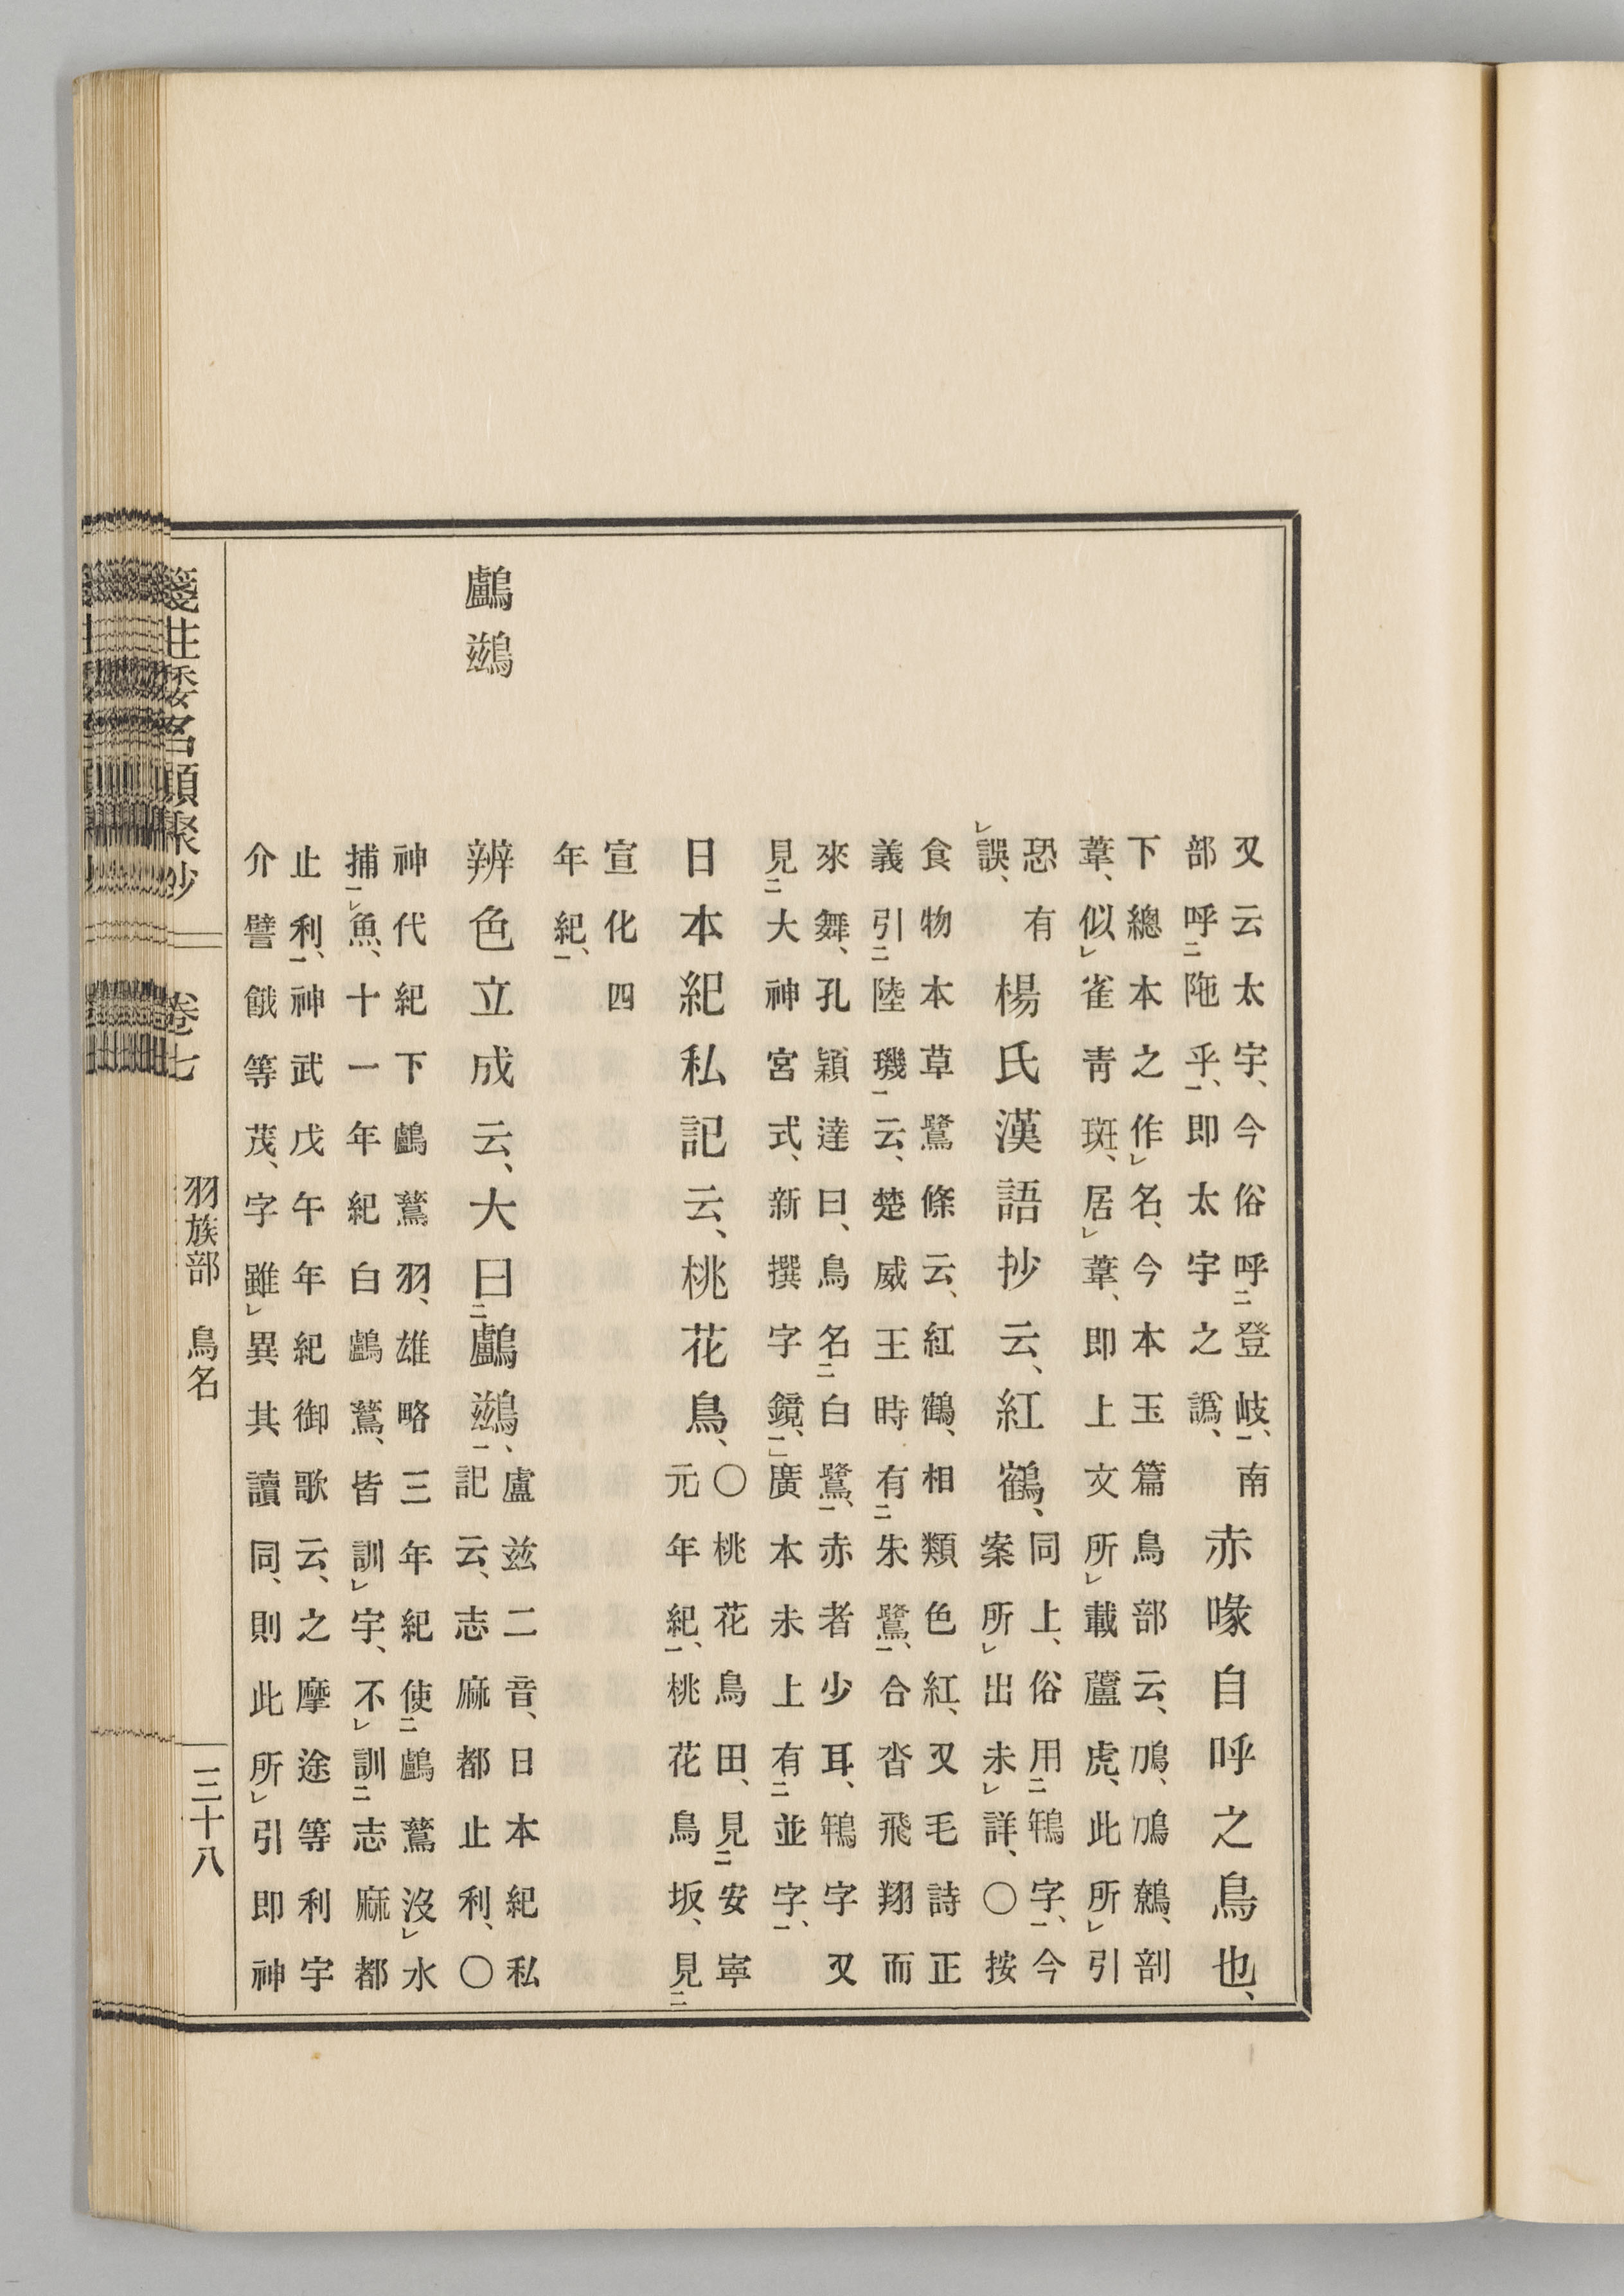 又云太宇、今俗呼二登岐一、南
部呼二陁乎一、即太宇之譌、
赤喙自呼之鳥也、
下總本之作レ名、今本玉篇鳥部云、鳭、鳭鷯、剖
葦、似レ雀靑斑、居レ葦、即上文所レ載蘆虎、此所レ引
恐有
レ誤、
楊氏漢語抄云、紅鶴、
同上、俗用二鵇字一、今
案所レ出未レ詳、〇按
食物本草鷺條云、紅鶴、相類色紅、又毛詩正
義引二陸璣一云、楚威王時有二朱鷺一、合沓飛翔而
來舞、孔穎達曰、鳥名二白鷺一、赤者少耳、鵇字又
見二大神宮式、新撰字鏡一、廣本未上有二並字一、
日本紀私記云、桃花鳥、
〇桃花鳥田、見二安寧
元年紀一、桃花鳥坂、見二
宣化四
年紀一、
鸕鷀
辨色立成云、大曰二鸕鷀一、
盧茲二音、日本紀私
記云、志麻都止利、〇
神代紀下鸕鶿羽、雄略三年紀使二鸕鶿沒レ水
捕一レ魚、十一年紀白鸕鶿、皆訓レ宇、不レ訓二志麻都
止利一、神武戊午年紀御歌云、之摩途等利宇
介譬餓等茂、字雖レ異其讀同、則此所レ引即神
箋注倭名類聚抄 卷七 羽族部 鳥名 三十八